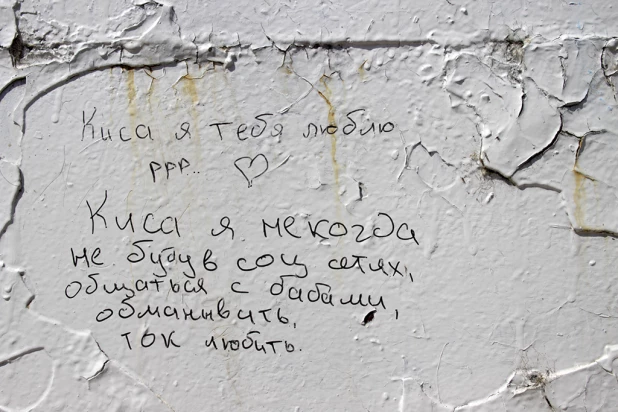 Киса я тебя люблю
ррр.. ♡
Киса я некогда
не буду в соц сетях,
общаться с бабами,
обманывить,
ток любить.